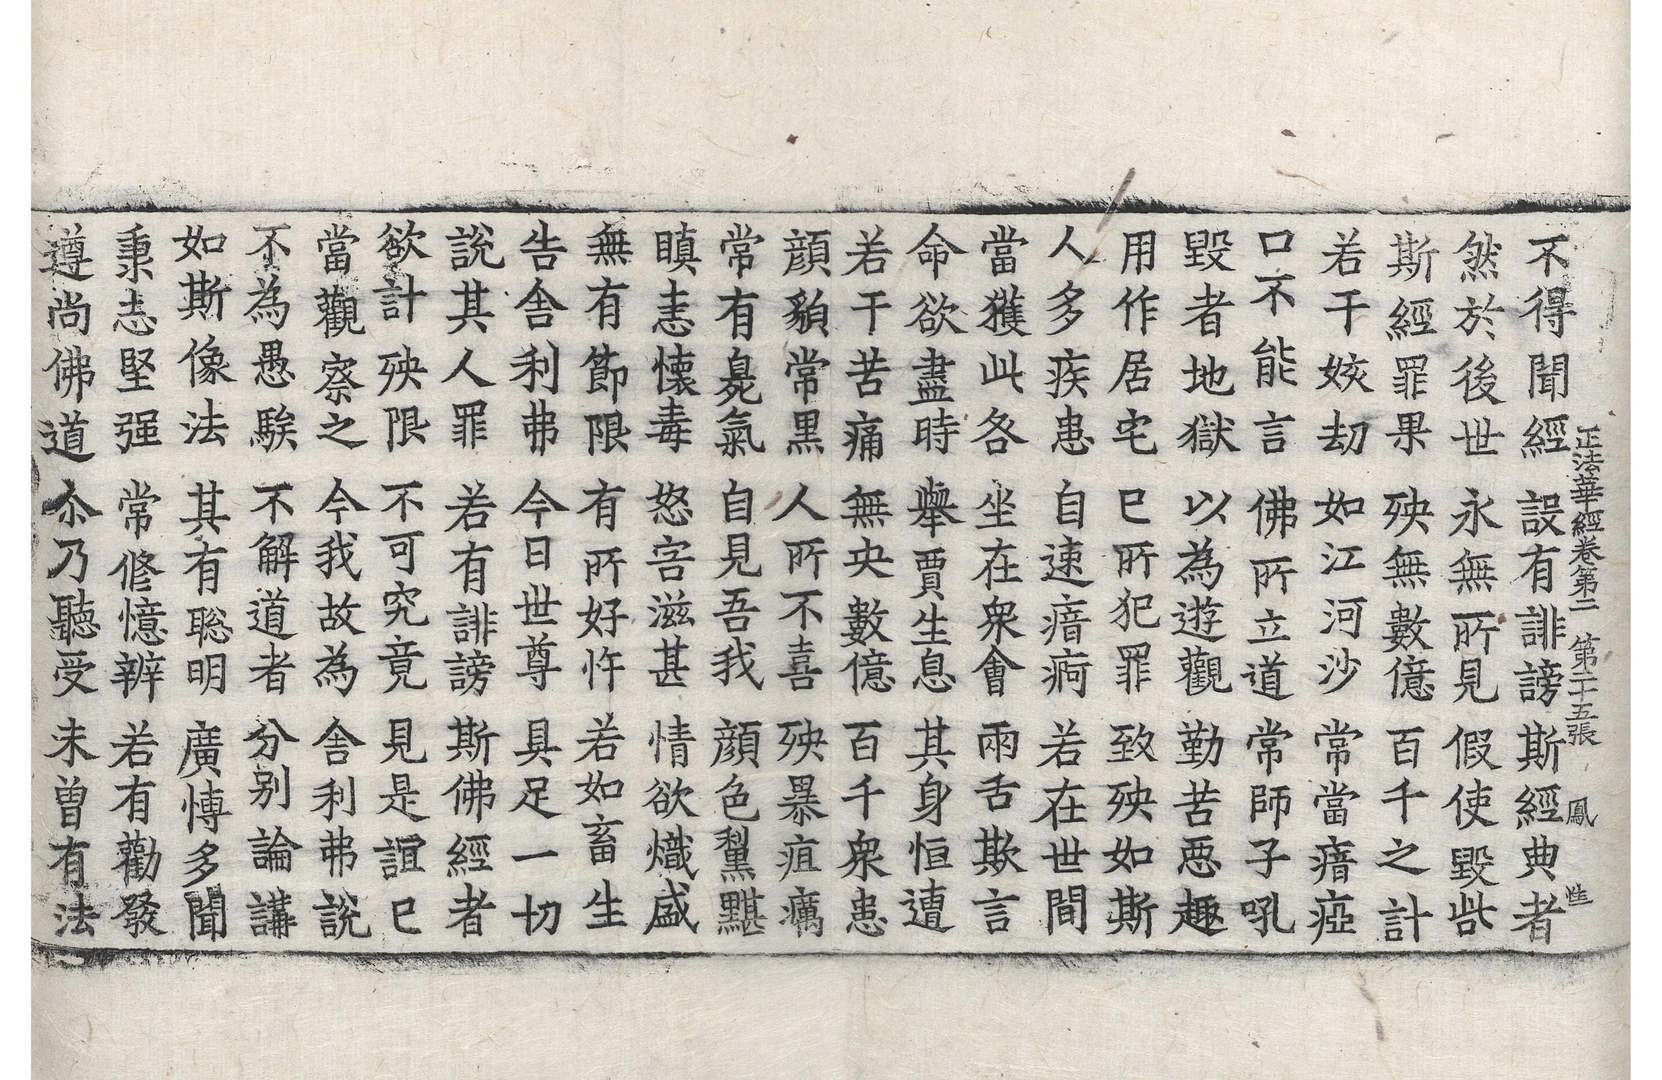 正法華經卷第二 第二十五張 鳳
不得聞經 設有誹謗 斯經典者
然於後世 永無所見 假使毀呰
斯經罪果 殃無數億 百千之計
若干姟劫 如江河沙 常當瘖瘂
口不能言 佛所立道 常師子吼
毀者地獄 以為遊觀 勤苦惡趣
用作居宅 已所犯罪 致殃如斯
人多疾患 自速瘖痾 若在世間
當獲此各 坐在衆會 兩舌欺言
命欲盡時 舉賈生息 其身恒遭
若干苦痛 無央數億 百千衆患
顔貌常黑 人所不喜 殃暴疽癘
常有臰氣 自見吾我 顔色黧黮
瞋恚懷毒 怒害滋甚 情欲熾盛
無有節限 有所好忤 若如畜生
告舍利弗 今日世尊 具足一切
說其人罪 若有誹謗 斯佛經者
欲計殃限 不可究竟 見是誼已
當觀察之 今我故為 舍利弗說
不為愚騃 不解道者 分別論講
如斯像法 其有聡明 廣博多聞
秉志堅强 常修憶辨 若有勸發
遵尚佛道 尒乃聽受 未曾有法